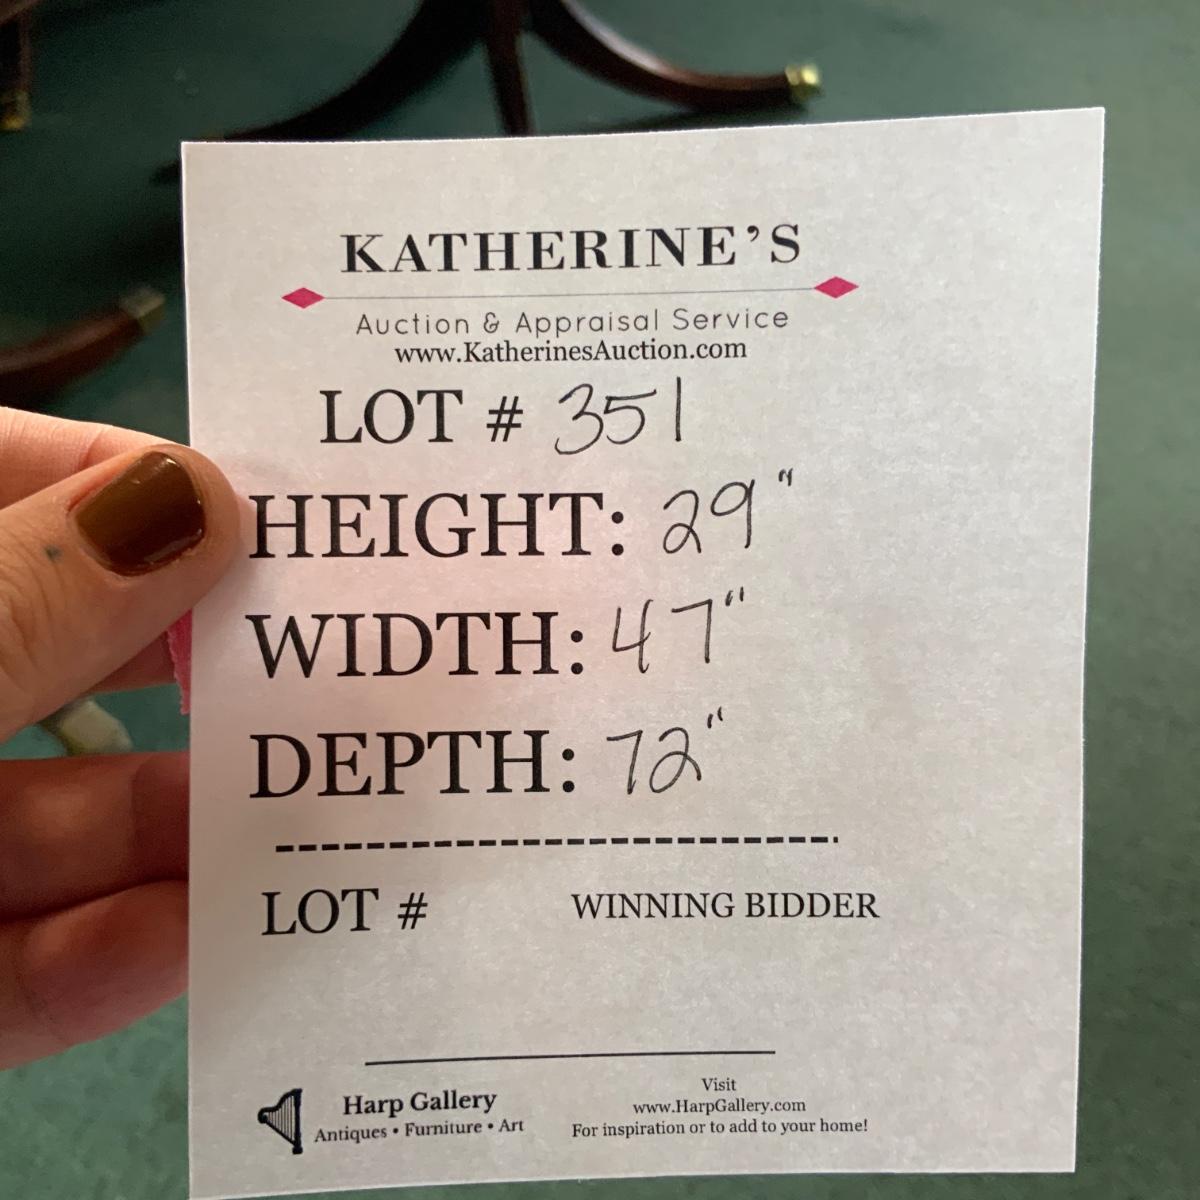 KATHERINE'S
Auction & Appraisal Service
www.KatherinesAuction.com
LOT # 351
HEIGHT: 29"
WIDTH: 47"
DEPTH: 72"
LOT # WINNING BIDDER
Harp Gallery
Antiques • Furniture • Art
Visit
www.HarpGallery.com
For inspiration or to add to your home!